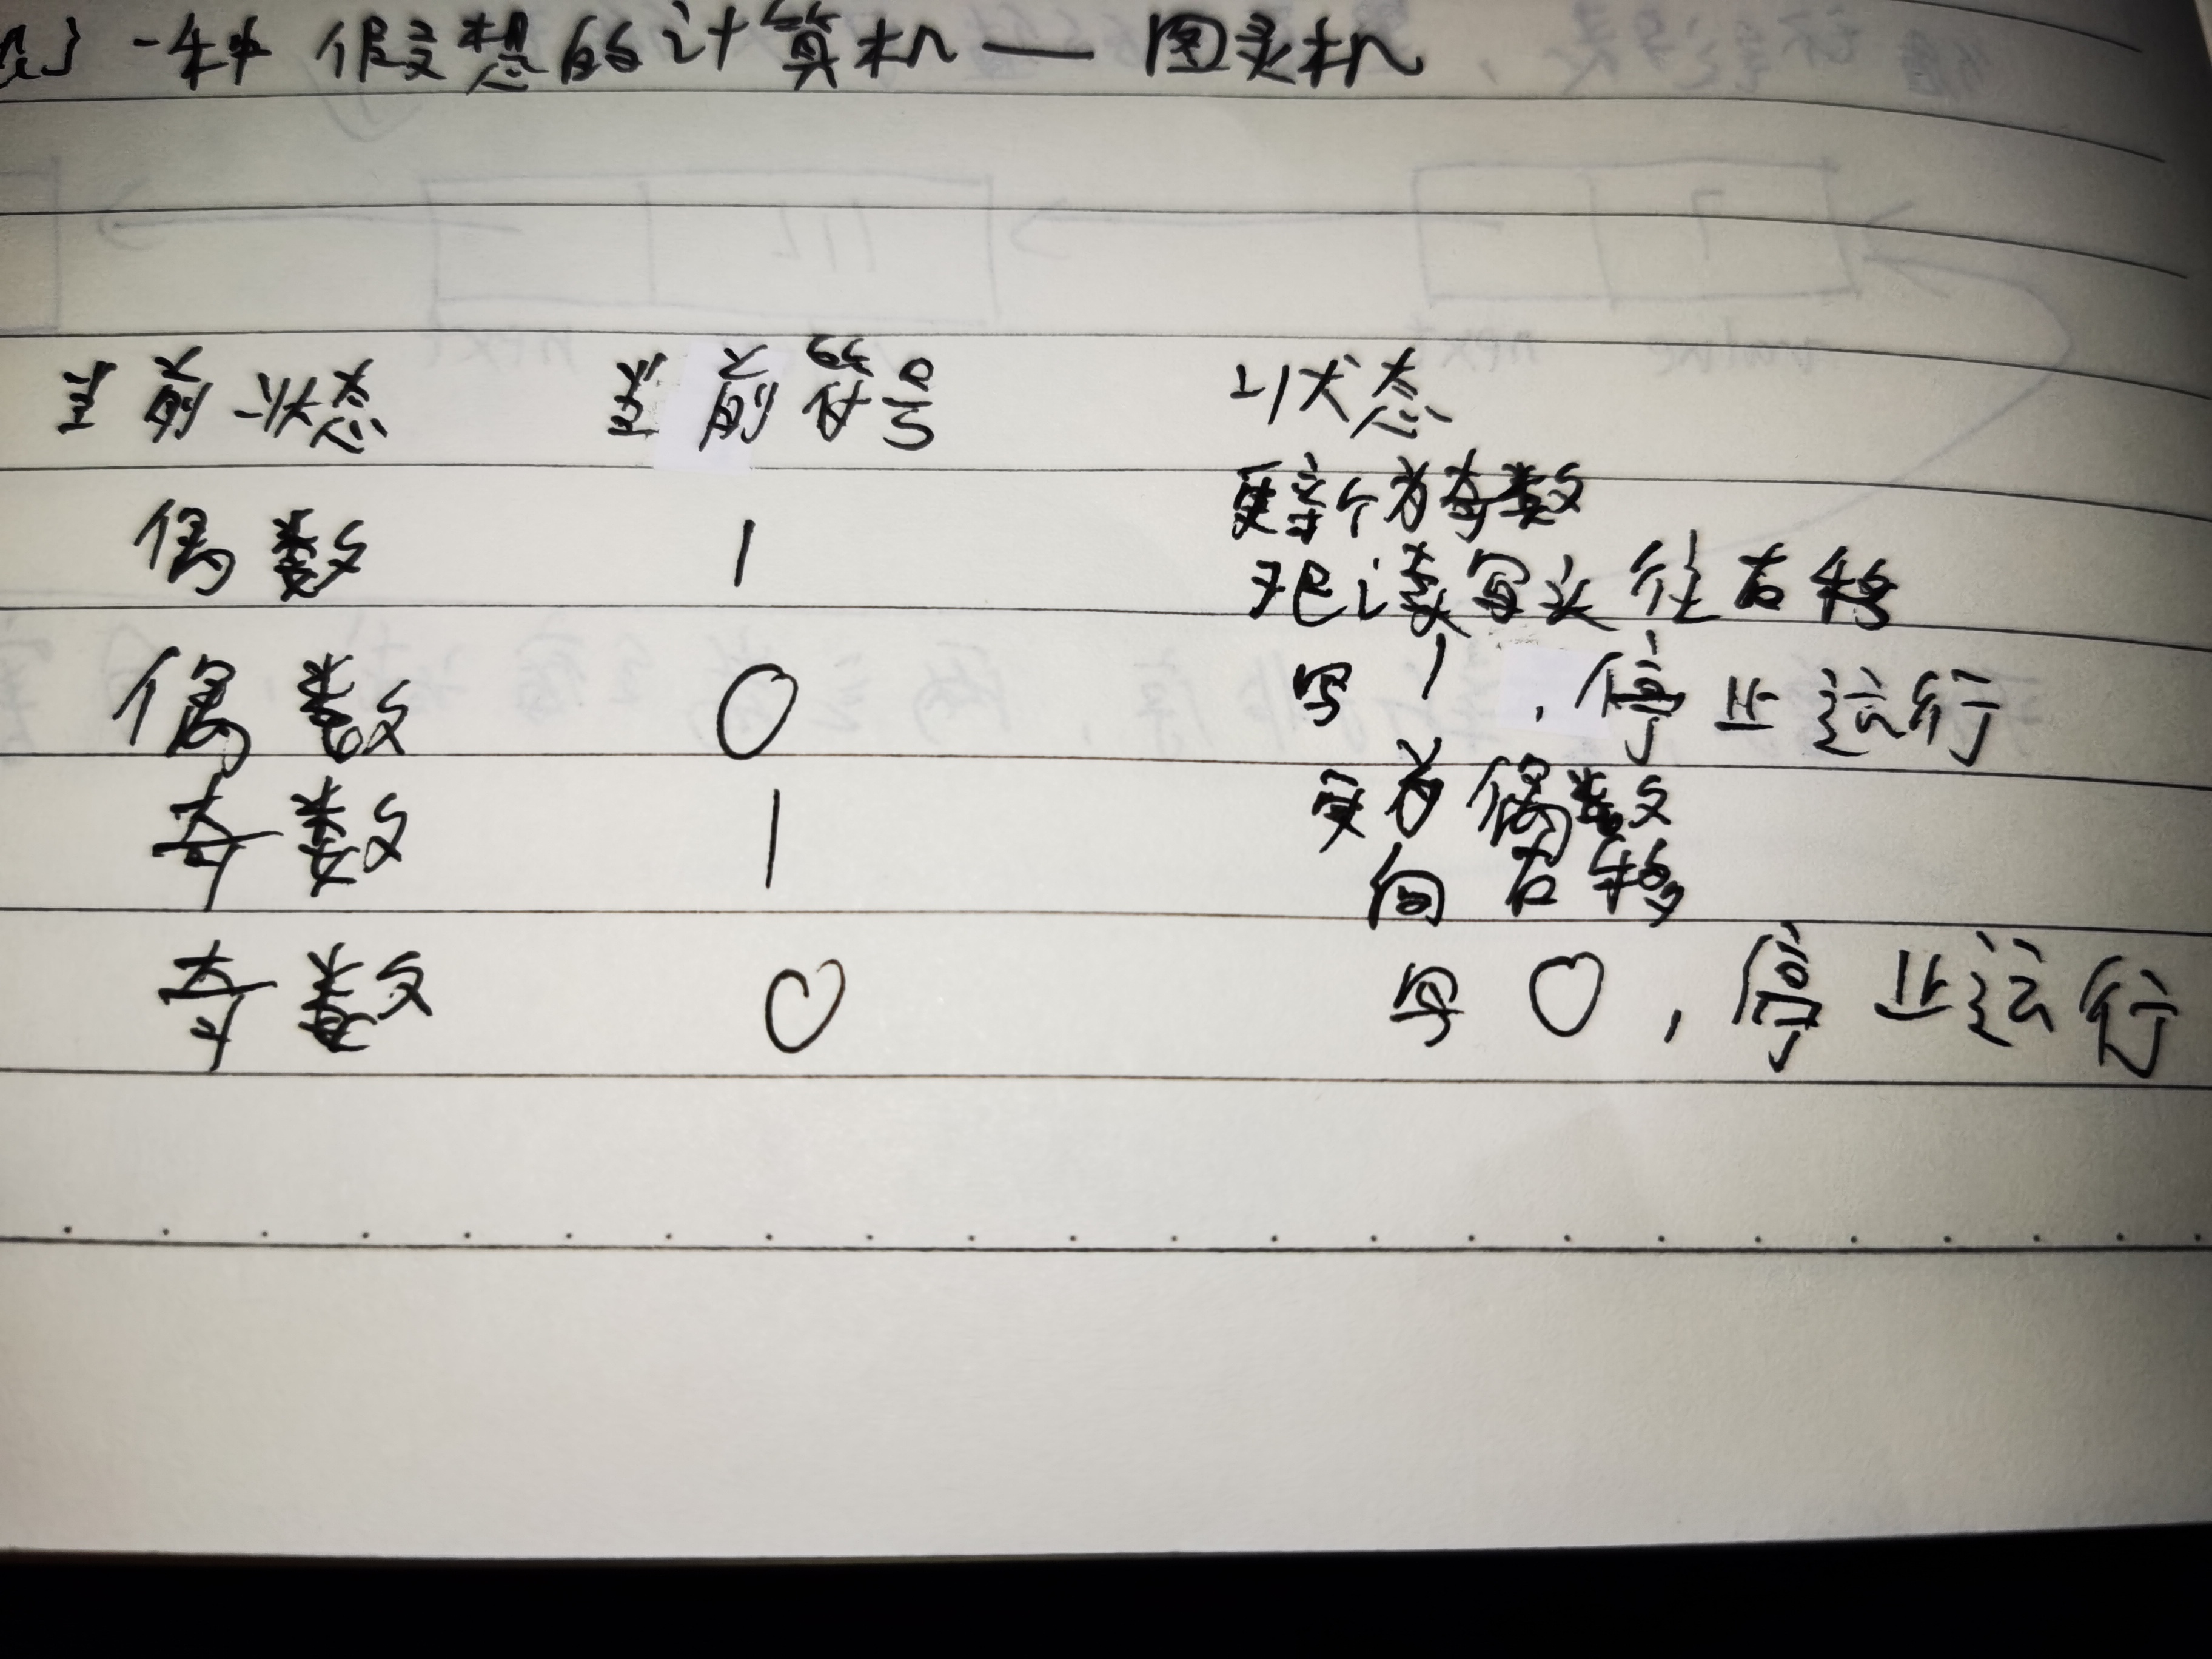 一种假想的计算机 — 图灵机
当前状态 当前符号 状态
更新为奇数
偶数 1 把读写头往右移
偶数 0 写 1 , 停止运行
变为偶数
奇数 1 向右移
奇数 0 写 0 , 停止运行